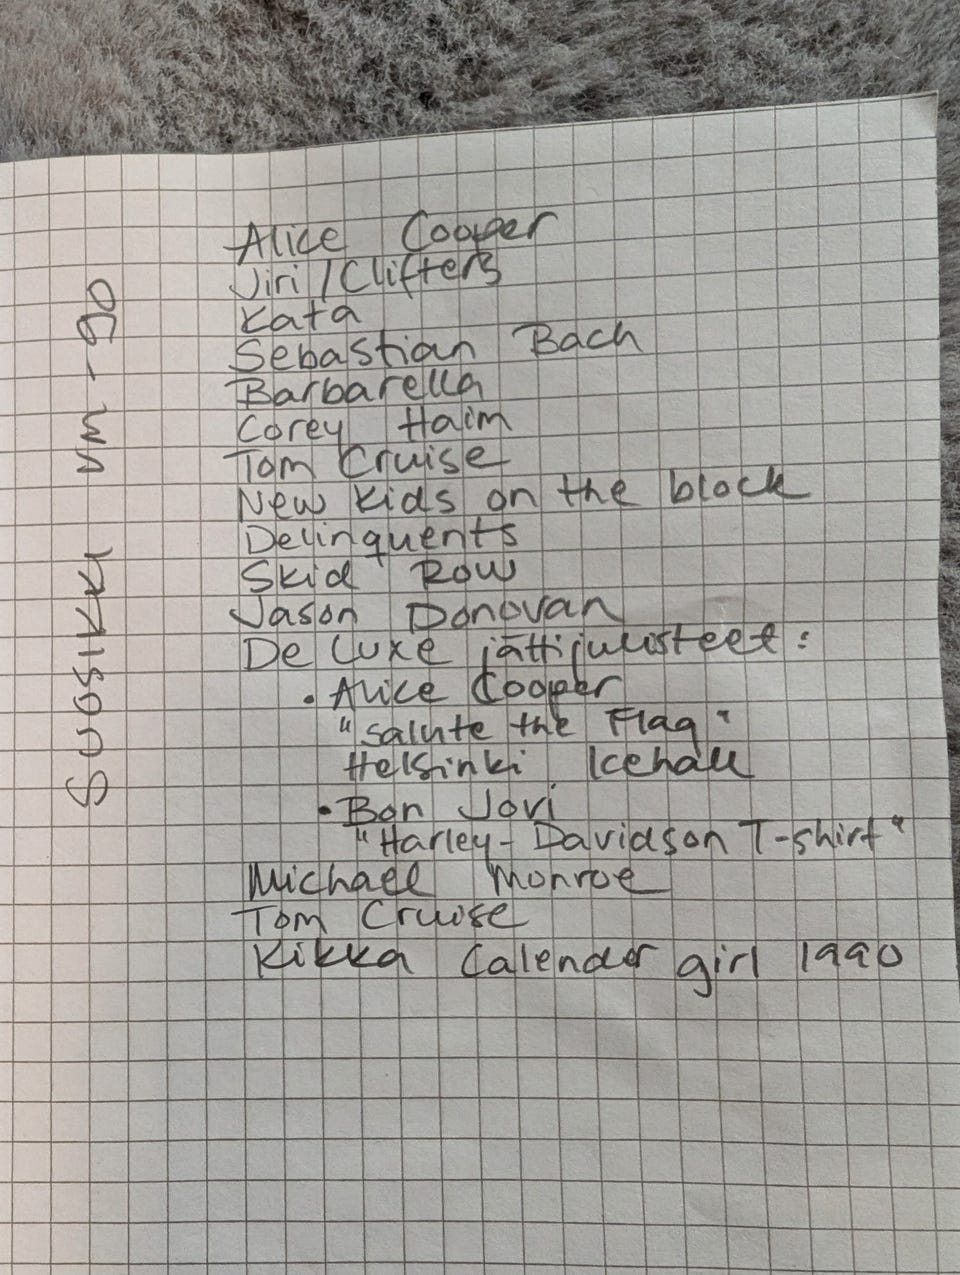 Suosikki vm -90
Alice Cooper
Jiri / Clifters
Kata
Sebastian Bach
Barbarella
Corey Haim
Tom Cruise
New kids on the block
Delinquents
Skid Row
Jason Donovan
De Luxe jättijulisteet:
• Alice Cooper
"Salute the Flag"
Helsinki Icehall
• Bon Jovi
"Harley-Davidson T-shirt"
Michael Monroe
Tom Cruise
Kikka Calender girl 1990